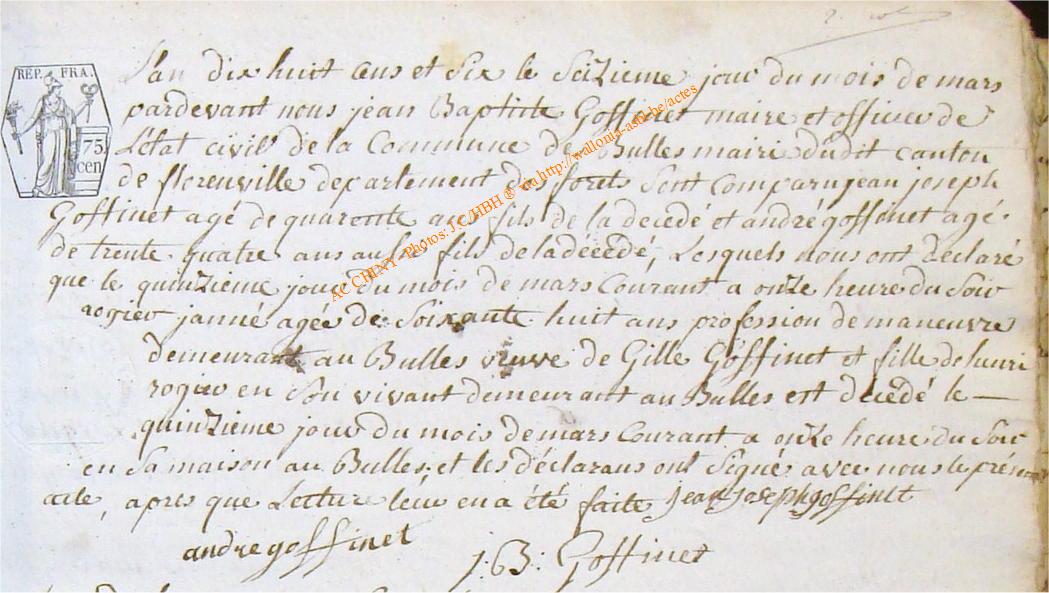 REP. FRA.
75.
cen
L'an dix huit cens et Six le Seizieme jour du mois de mars
pardevant nous jean Baptiste Goffinet maire et officier de
L'état civil de la Commune de Bulles mairi dudit canton
de florenville departement des forets Sont Comparu jean joseph
Goffinet agé de quarente ans fils de la décédé et andré goffinet agé
de trente quatre ans aussi fils de la décédé, Lesquels nous ont déclaré
que le quinzieme jour du mois de mars Courant a onze heure du Soir
rogier janne agée de Soixante huit ans profession de maneuvre
demeurant au Bulles veuve de Gille Goffinet et fille de henri
rogier en Son vivant demeurant au Bulles est décédé le —
quinzieme jour du mois de mars Courant a onze heure du Soir
en Sa maison au Bulles, et les déclarans ont Signé avec nous le présent
acte, apres que Lecture leur en a été faite jean joseph goffinet
andre goffinet
J:B: Goffinet
AC CHINY -Photos: J.C/HBH ® via http://wallonia-asbl.be/actes